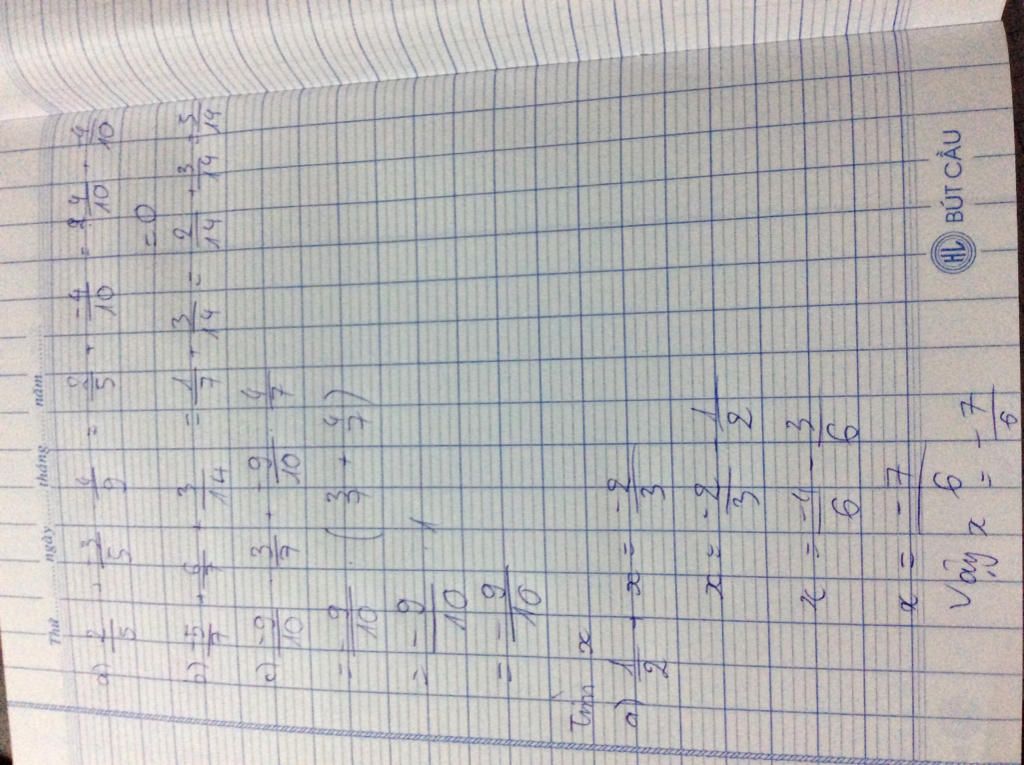 Thứ ngày tháng năm
a) 2/5 + -3/5 · 4/9 = 2/5 + -4/10 = 4/10 + -4/10
= 0
b) -5/7 + 6/7 + 3/14 = 1/7 + 3/14 = 2/14 + 3/14 = 5/14
c) -9/10 · 3/7 + -9/10 · 4/7
= -9/10 · (3/7 + 4/7)
= -9/10 · 1
= -9/10
Tìm x
a) 1/2 + x = -2/3
x = -2/3 - 1/2
x = -4/6 - 3/6
x = -7/6
Vậy x = -7/6
HL BÚT CẦU